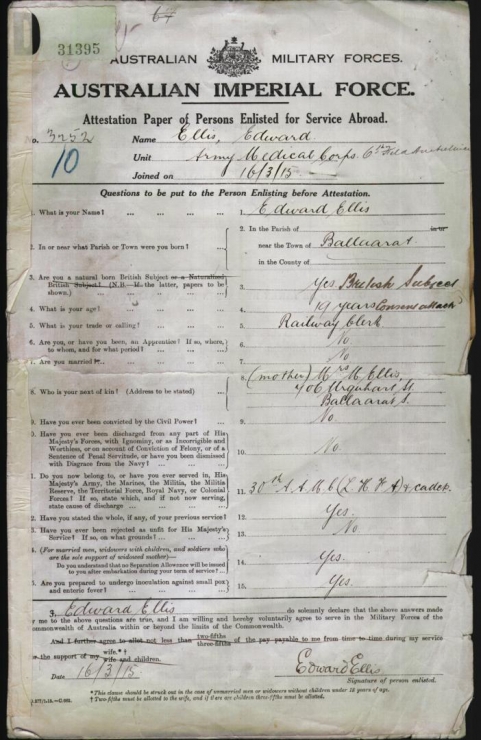 31395
AUSTRALIAN MILITARY FORCES.
AUSTRALIAN IMPERIAL FORCE.
Attestation Paper of Persons Enlisted for Service Abroad.
No. 3252 Name Ellis, Edward
10 Unit Army Medical Corps. 6th Field
Joined on 16/3/15
Questions to be put to the Person Enlisting before Attestation.
1. What is your Name? ... ... ... ... 1. Edward Ellis
2. In or near what Parish or Town were you born? ... 2. In the Parish of in or
near the Town of Ballaarat
in the County of
3. Are you a natural born British Subject or a Naturalised
British Subject? (N.B.—If the latter, papers to be
shown.) 3. Yes. British Subject
4. What is your age? 4. 19 years Consent attach
5. What is your trade or calling? 5. Railway Clerk
6. Are you, or have you been, an Apprentice? If so, where,
to whom, and for what period? 6. No
7. Are you married? 7. No
8. Who is your next of kin? (Address to be stated) 8. (mother) Mrs M. Ellis,
406 Urquhart St
Ballaarat S.
9. Have you ever been convicted by the Civil Power? 9. No.
10. Have you ever been discharged from any part of His
Majesty's Forces, with Ignominy, or as Incorrigible and
Worthless, or on account of Conviction of Felony, or of a
Sentence of Penal Servitude, or have you been dismissed
with Disgrace from the Navy? 10. No.
11. Do you now belong to, or have you ever served in, His
Majesty's Army, the Marines, the Militia, the Militia
Reserve, the Territorial Force, Royal Navy, or Colonial
Forces? If so, state which, and if not now serving,
state cause of discharge 11. 30th A.A.M.C (L.H.F.A) & cadet.
12. Have you stated the whole, if any, of your previous service? 12. Yes.
13. Have you ever been rejected as unfit for His Majesty's
Service? If so, on what grounds? 13. No.
14. (For married men, widowers with children, and soldiers who
are the sole support of widowed mother)—
Do you understand that no Separation Allowance will be issued
to you after embarkation during your term of service? 14. Yes.
15. Are you prepared to undergo inoculation against small pox
and enteric fever? 15. Yes.
I, Edward Ellis do solemnly declare that the above answers made
by me to the above questions are true, and I am willing and hereby voluntarily agree to serve in the Military Forces of the
Commonwealth of Australia within or beyond the limits of the Commonwealth.
And I further agree to allot not less than two-fifths three-fifths of the pay payable to me from time to time during my service
for the support of my wife.*† wife and children.
Date 16/3/15. Edward Ellis
Signature of person enlisted.
* This clause should be struck out in the case of unmarried men or widowers without children under 18 years of age.
† Two-fifths must be allotted to the wife, and if there are children three-fifths must be allotted.